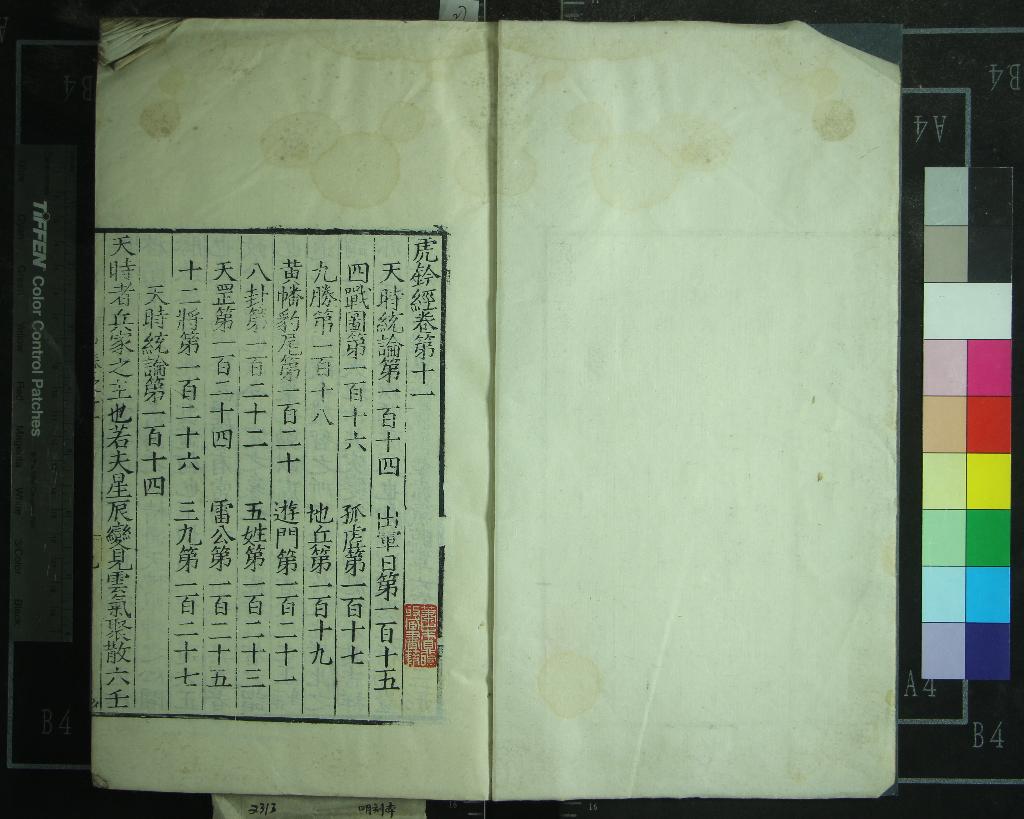 虎鈐經卷第十一
天時統論第一百十四 出軍日第一百十五
四戰圖第一百十六 孤虛第一百十七
九勝第一百十八 地丘第一百十九
黃幡豹尾第一百二十 遊門第一百二十一
八封第一百二十二 五姓第一百二十三
天罡第一百二十四 雷公第一百二十五
十二將第一百二十六 三九第一百二十七
天時統論第一百十四
天時者兵家之主也若夫星辰變見雲氣聚散六壬
TIFFEN Color Control Patches
B4
A4
B4
A4
B4
B4
2313
明刻本